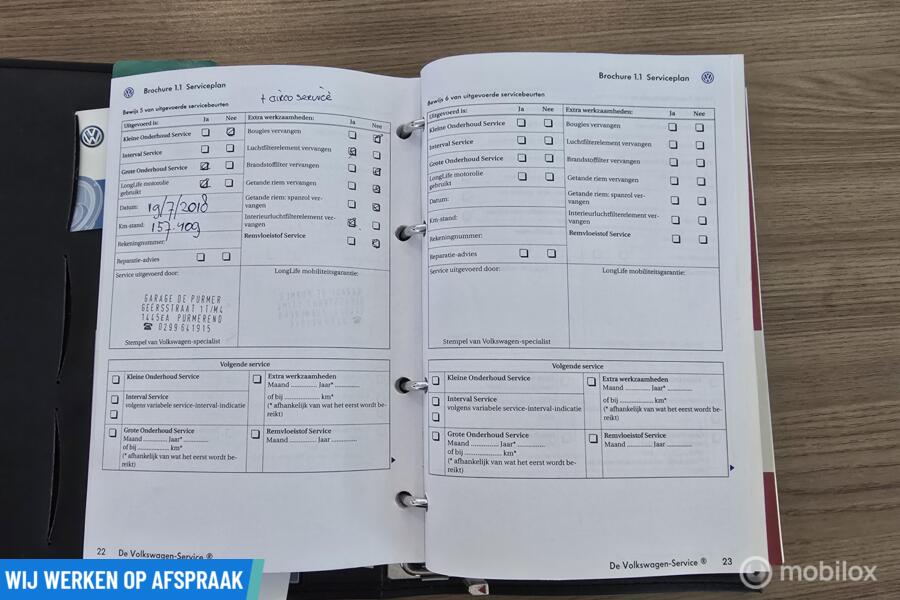 Brochure 1.1 Serviceplan
+ airco service
Bewijs 5 van uitgevoerde servicebeurten
Uitgevoerd is: Ja Nee
Kleine Onderhoud Service
Interval Service
Grote Onderhoud Service
LongLife motorolie
gebruikt
Datum: 19/7/2018
Km-stand: 157.409
Rekeningnummer:
Reparatie-advies
Extra werkzaamheden: Ja Nee
Bougies vervangen
Luchtfilterelement vervangen
Brandstoffilter vervangen
Getande riem vervangen
Getande riem: spanrol ver-
vangen
Interieurluchtfilterelement ver-
vangen
Remvloeistof Service
Service uitgevoerd door:
GARAGE DE PURMER
GEERSSTRAAT 17/M4
1445EA PURMEREND
☎ 0299 641915
Stempel van Volkswagen-specialist
LongLife mobiliteitsgarantie:
Volgende service
Kleine Onderhoud Service
Interval Service
volgens variabele service-interval-indicatie
Grote Onderhoud Service
Maand ............ Jaar* ................
of bij .................. km*
(* afhankelijk van wat het eerst wordt be-
reikt)
Extra werkzaamheden
Maand ............ Jaar* ................
of bij .................. km*
(* afhankelijk van wat het eerst wordt be-
reikt)
Remvloeistof Service
Maand ............ Jaar ................
22 De Volkswagen-Service ®
Brochure 1.1 Serviceplan
Bewijs 6 van uitgevoerde servicebeurten
Uitgevoerd is: Ja Nee
Kleine Onderhoud Service
Interval Service
Grote Onderhoud Service
LongLife motorolie
gebruikt
Datum:
Km-stand:
Rekeningnummer:
Reparatie-advies
Extra werkzaamheden: Ja Nee
Bougies vervangen
Luchtfilterelement vervangen
Brandstoffilter vervangen
Getande riem vervangen
Getande riem: spanrol ver-
vangen
Interieurluchtfilterelement ver-
vangen
Remvloeistof Service
Service uitgevoerd door:
Stempel van Volkswagen-specialist
LongLife mobiliteitsgarantie:
Volgende service
Kleine Onderhoud Service
Interval Service
volgens variabele service-interval-indicatie
Grote Onderhoud Service
Maand ............ Jaar* ................
of bij .................. km*
(* afhankelijk van wat het eerst wordt be-
reikt)
Extra werkzaamheden
Maand ............ Jaar* ................
of bij .................. km*
(* afhankelijk van wat het eerst wordt be-
reikt)
Remvloeistof Service
Maand ............ Jaar ................
De Volkswagen-Service ® 23
WIJ WERKEN OP AFSPRAAK
mobilox